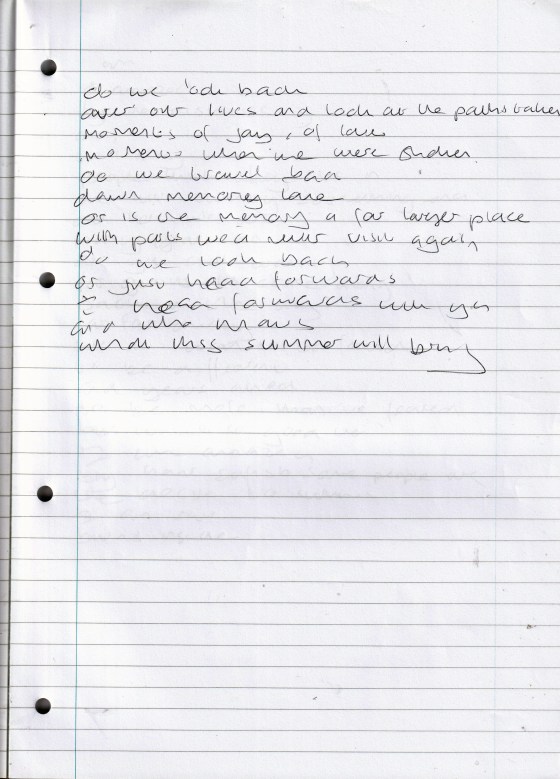 do we look back
over our lives and look at the paths taken
moments of joy, of love
moments when we were
do we travel back
down memory lane
or is the memory a far larger place
with paths we'll never visit again
do we look back
or just head forwards
I head forwards with you
and who knows
what this summer will bring